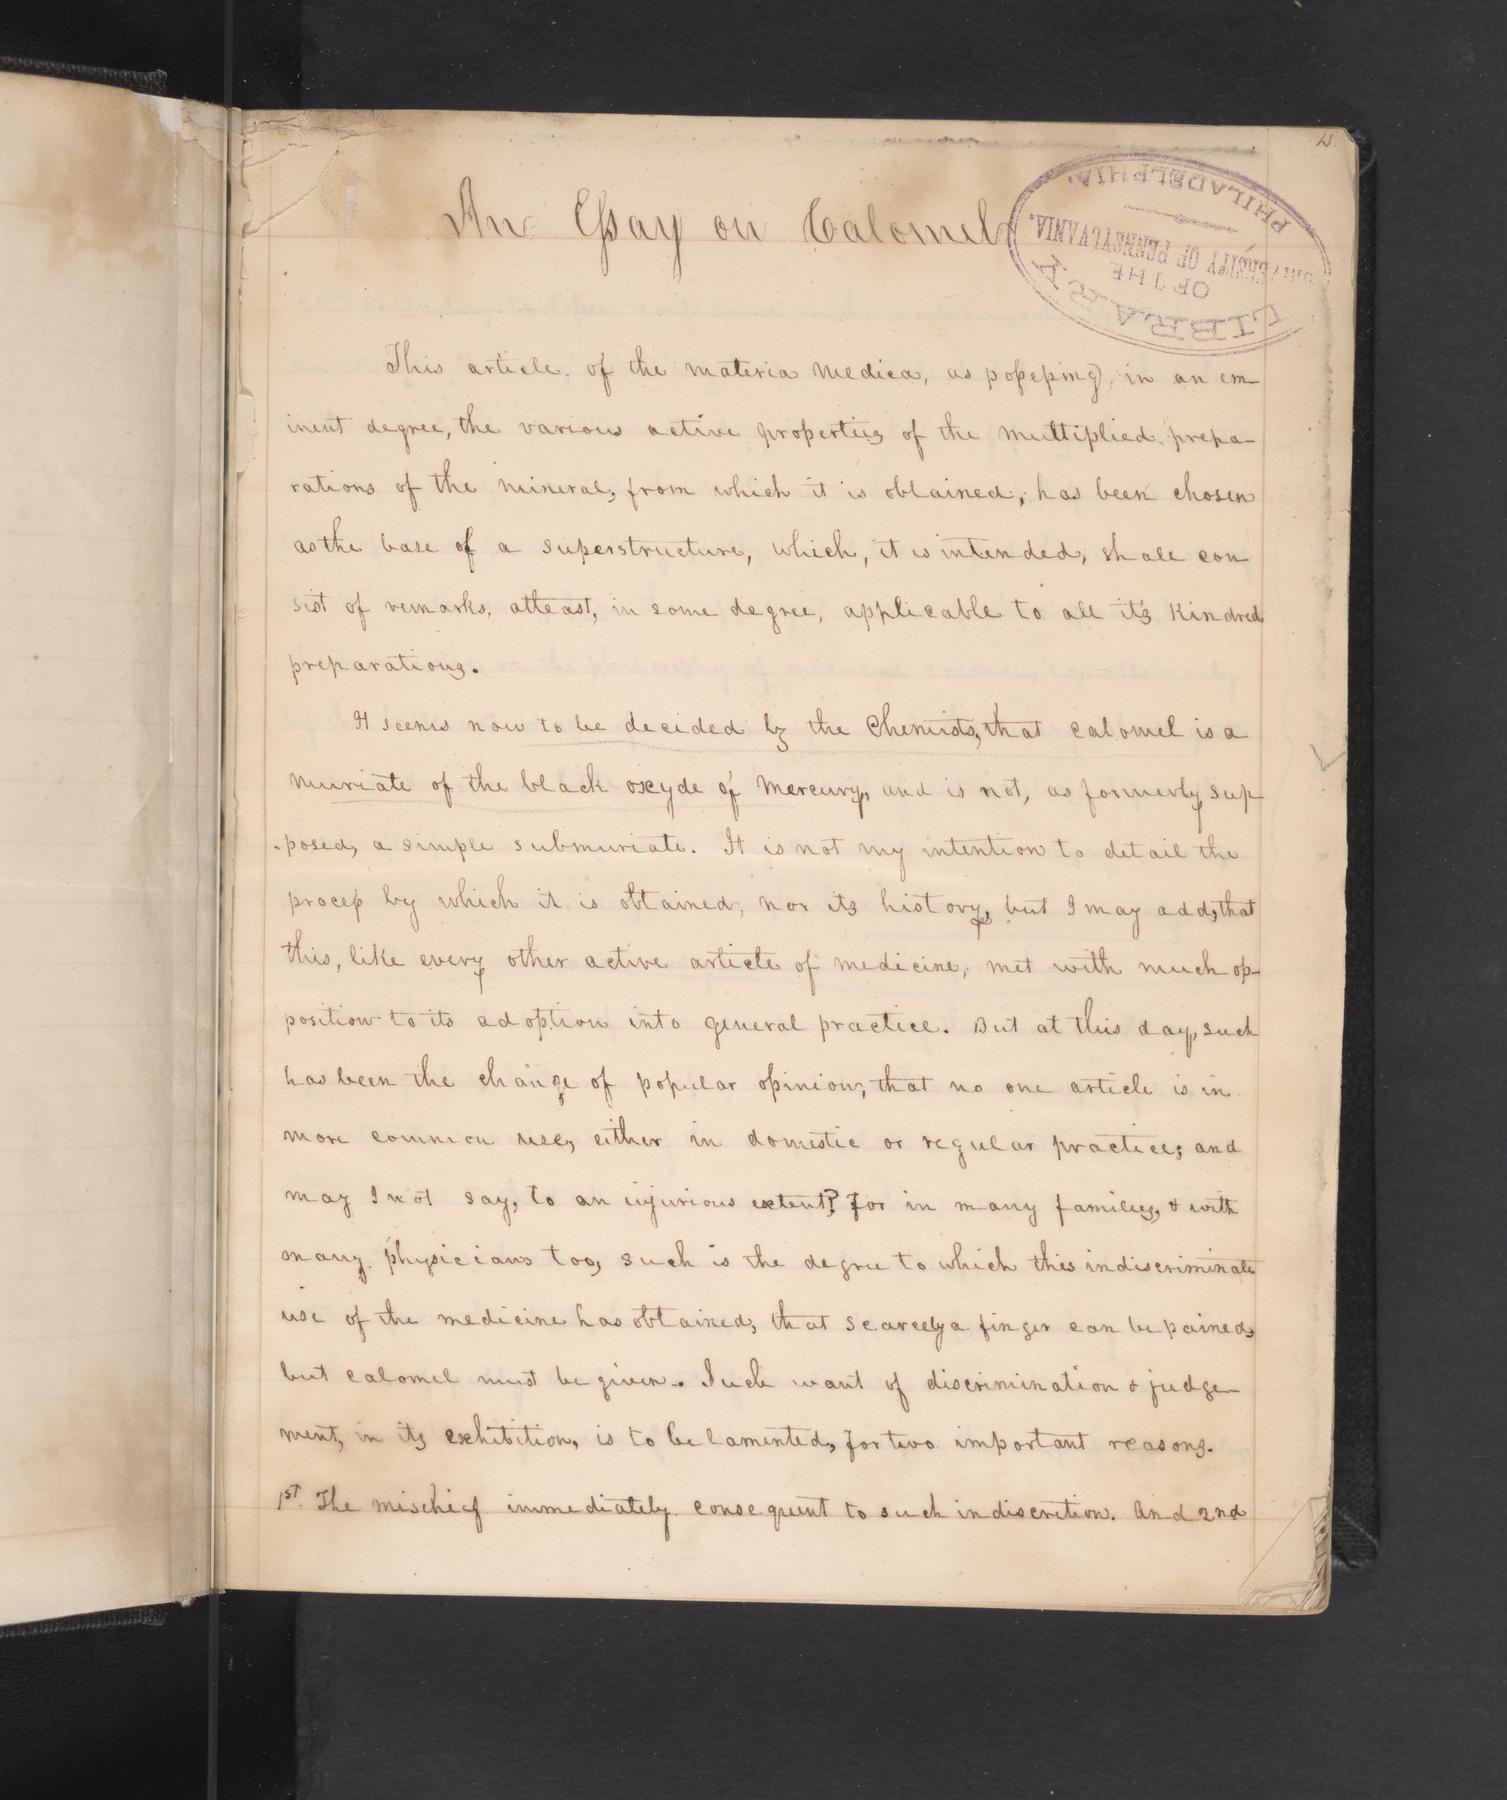 An Essay on Calomel
LIBRARY
OF THE
UNIVERSITY OF PENNSYLVANIA.
PHILADELPHIA.
This article of the materia medica, as possessing, in an em-
inent degree, the various active properties of the multiplied prepa-
rations of the mineral, from which it is obtained, has been chosen
as the base of a superstructure, which, it is intended, shall con
sist of remarks, atleast, in some degree, applicable to all its kindred
preparations.
It seems now to be decided by the Chemists, that calomel is a
muriate of the black oxyde of mercury, and is not, as formerly sup-
posed, a simple submuriate. It is not my intention to detail the
process by which it is obtained, nor its history, but I may add, that
this, like every other active article of medicine, met with much op-
position to its adoption into general practice. But at this day, such
has been the change of popular opinion, that no one article is in
more common use, either in domestic or regular practice; and
may I not say, to an injurious extent? For in many families, & with
many physicians too, such is the degree to which this indiscriminate
use of the medicine has obtained, that scarcely a finger can be pained,
but calomel must be given. Such want of discrimination & judge-
ment, in its exhibition, is to be lamented, for two important reasons.
1st. The mischief immediately consequent to such indiscretion. And 2nd